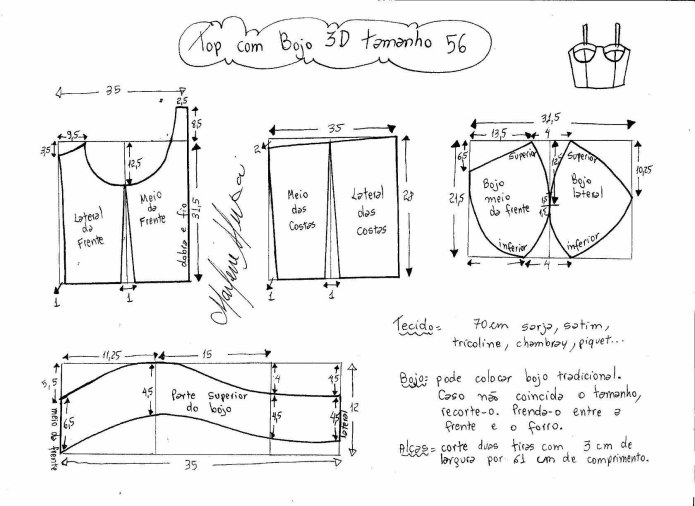 Top com Bojo 3D tamanho 56
35
2,5
8,5
9,5
3,5
12,5
31,5
Lateral
da
Frente
Meio
da
Frente
dobra e fio
1
1
Marlene Mukai
35
2
28
Meio
das
Costas
Lateral
das
costas
1
31,5
13,5
4
6,5
21,5
10,25
superior
superior
Bojo
meio
da frente
Bojo
lateral
1,5
1,5
inferior
inferior
4
11,25
15
5,5
6,5
4,5
4
4,5
4,5
4,5
12
Parte Superior
do bojo
meio da frente
lateral
35
Tecido= 70cm sarja, satim,
tricoline, chambray, piquet...
Bojo= pode colocar bojo tradicional.
Caso não coincida o tamanho,
recorte-o. Prenda-o entre a
frente e o forro.
Alças= corte duas tiras com 3 cm de
largura por 61 cm de comprimento.